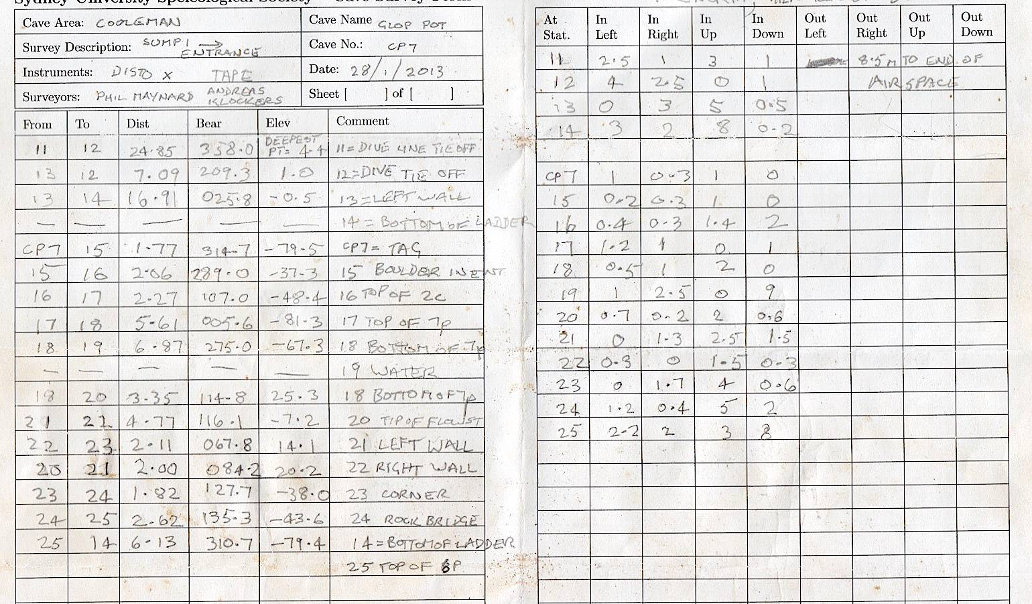 Cave Area: COOLEMAN
Cave Name GLOP POT
Survey Description: SUMP 1 → ENTRANCE
Cave No.: CP7
Instruments: DISTO X TAPE
Date: 28/1/2013
Surveyors: PHIL MAYNARD ANDREAS KLOCKERS
Sheet [ ] of [ ]
From To Dist Bear Elev Comment
11 12 24.85 358.0 DEEPEST PT= 4.4 11=DIVE LINE TIE OFF
13 12 7.09 209.3 1.0 12=DIVE TIE OFF
13 14 16.91 025.8 -0.5 13=LEFT WALL
— — — — — 14=BOTTOM OF LADDER
CP7 15 1.77 314.7 -79.5 CP7= TAG
15 16 2.06 289.0 -37.3 15 BOULDER IN ENT
16 17 2.27 107.0 -48.4 16 TOP OF 2c
17 18 5.61 005.6 -81.3 17 TOP OF 7p
18 19 6.87 275.0 -67.3 18 BOTTOM OF 7p
— — — — — 19 WATER
18 20 3.35 114.8 25.3 18 BOTTOM OF 7p
21 22 4.77 116.1 -7.2 20 TIP OF FLOWST
22 23 2.11 067.8 14.1 21 LEFT WALL
20 21 2.00 084.2 20.2 22 RIGHT WALL
23 24 1.82 127.7 -38.0 23 CORNER
24 25 2.62 135.3 -43.6 24 ROCK BRIDGE
25 14 6.13 310.7 -79.4 14=BOTTOM OF LADDER
25 TOP OF 6P
At Stat. In Left In Right In Up In Down Out Left Out Right Out Up Out Down
11 2.5 1 3 1 8.5M TO END OF
12 4 2.5 0 1 AIR SPACE
13 0 3 5 0.5
14 3 2 8 0.2
CP7 1 0.3 1 0
15 0.2 0.3 1 0
16 0.4 0.3 1.4 2
17 1.2 1 0 1
18 0.5 1 2 0
19 1 2.5 0 9
20 0.7 0.2 2 0.6
21 0 1.3 2.5 1.5
22 0.3 0 1.5 0.3
23 0 1.7 4 0.6
24 1.2 0.4 5 2
25 2.2 2 3 8